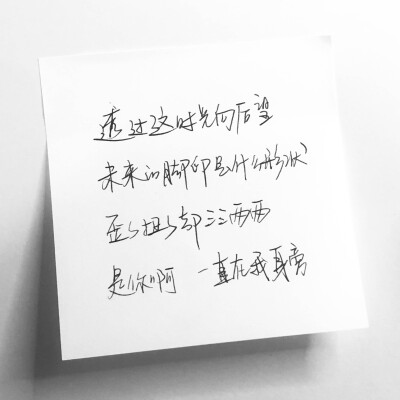 透过这时光向后望
未来的脚印是什么形状
歪歪扭扭却三三两两
是你啊 一直在我身旁